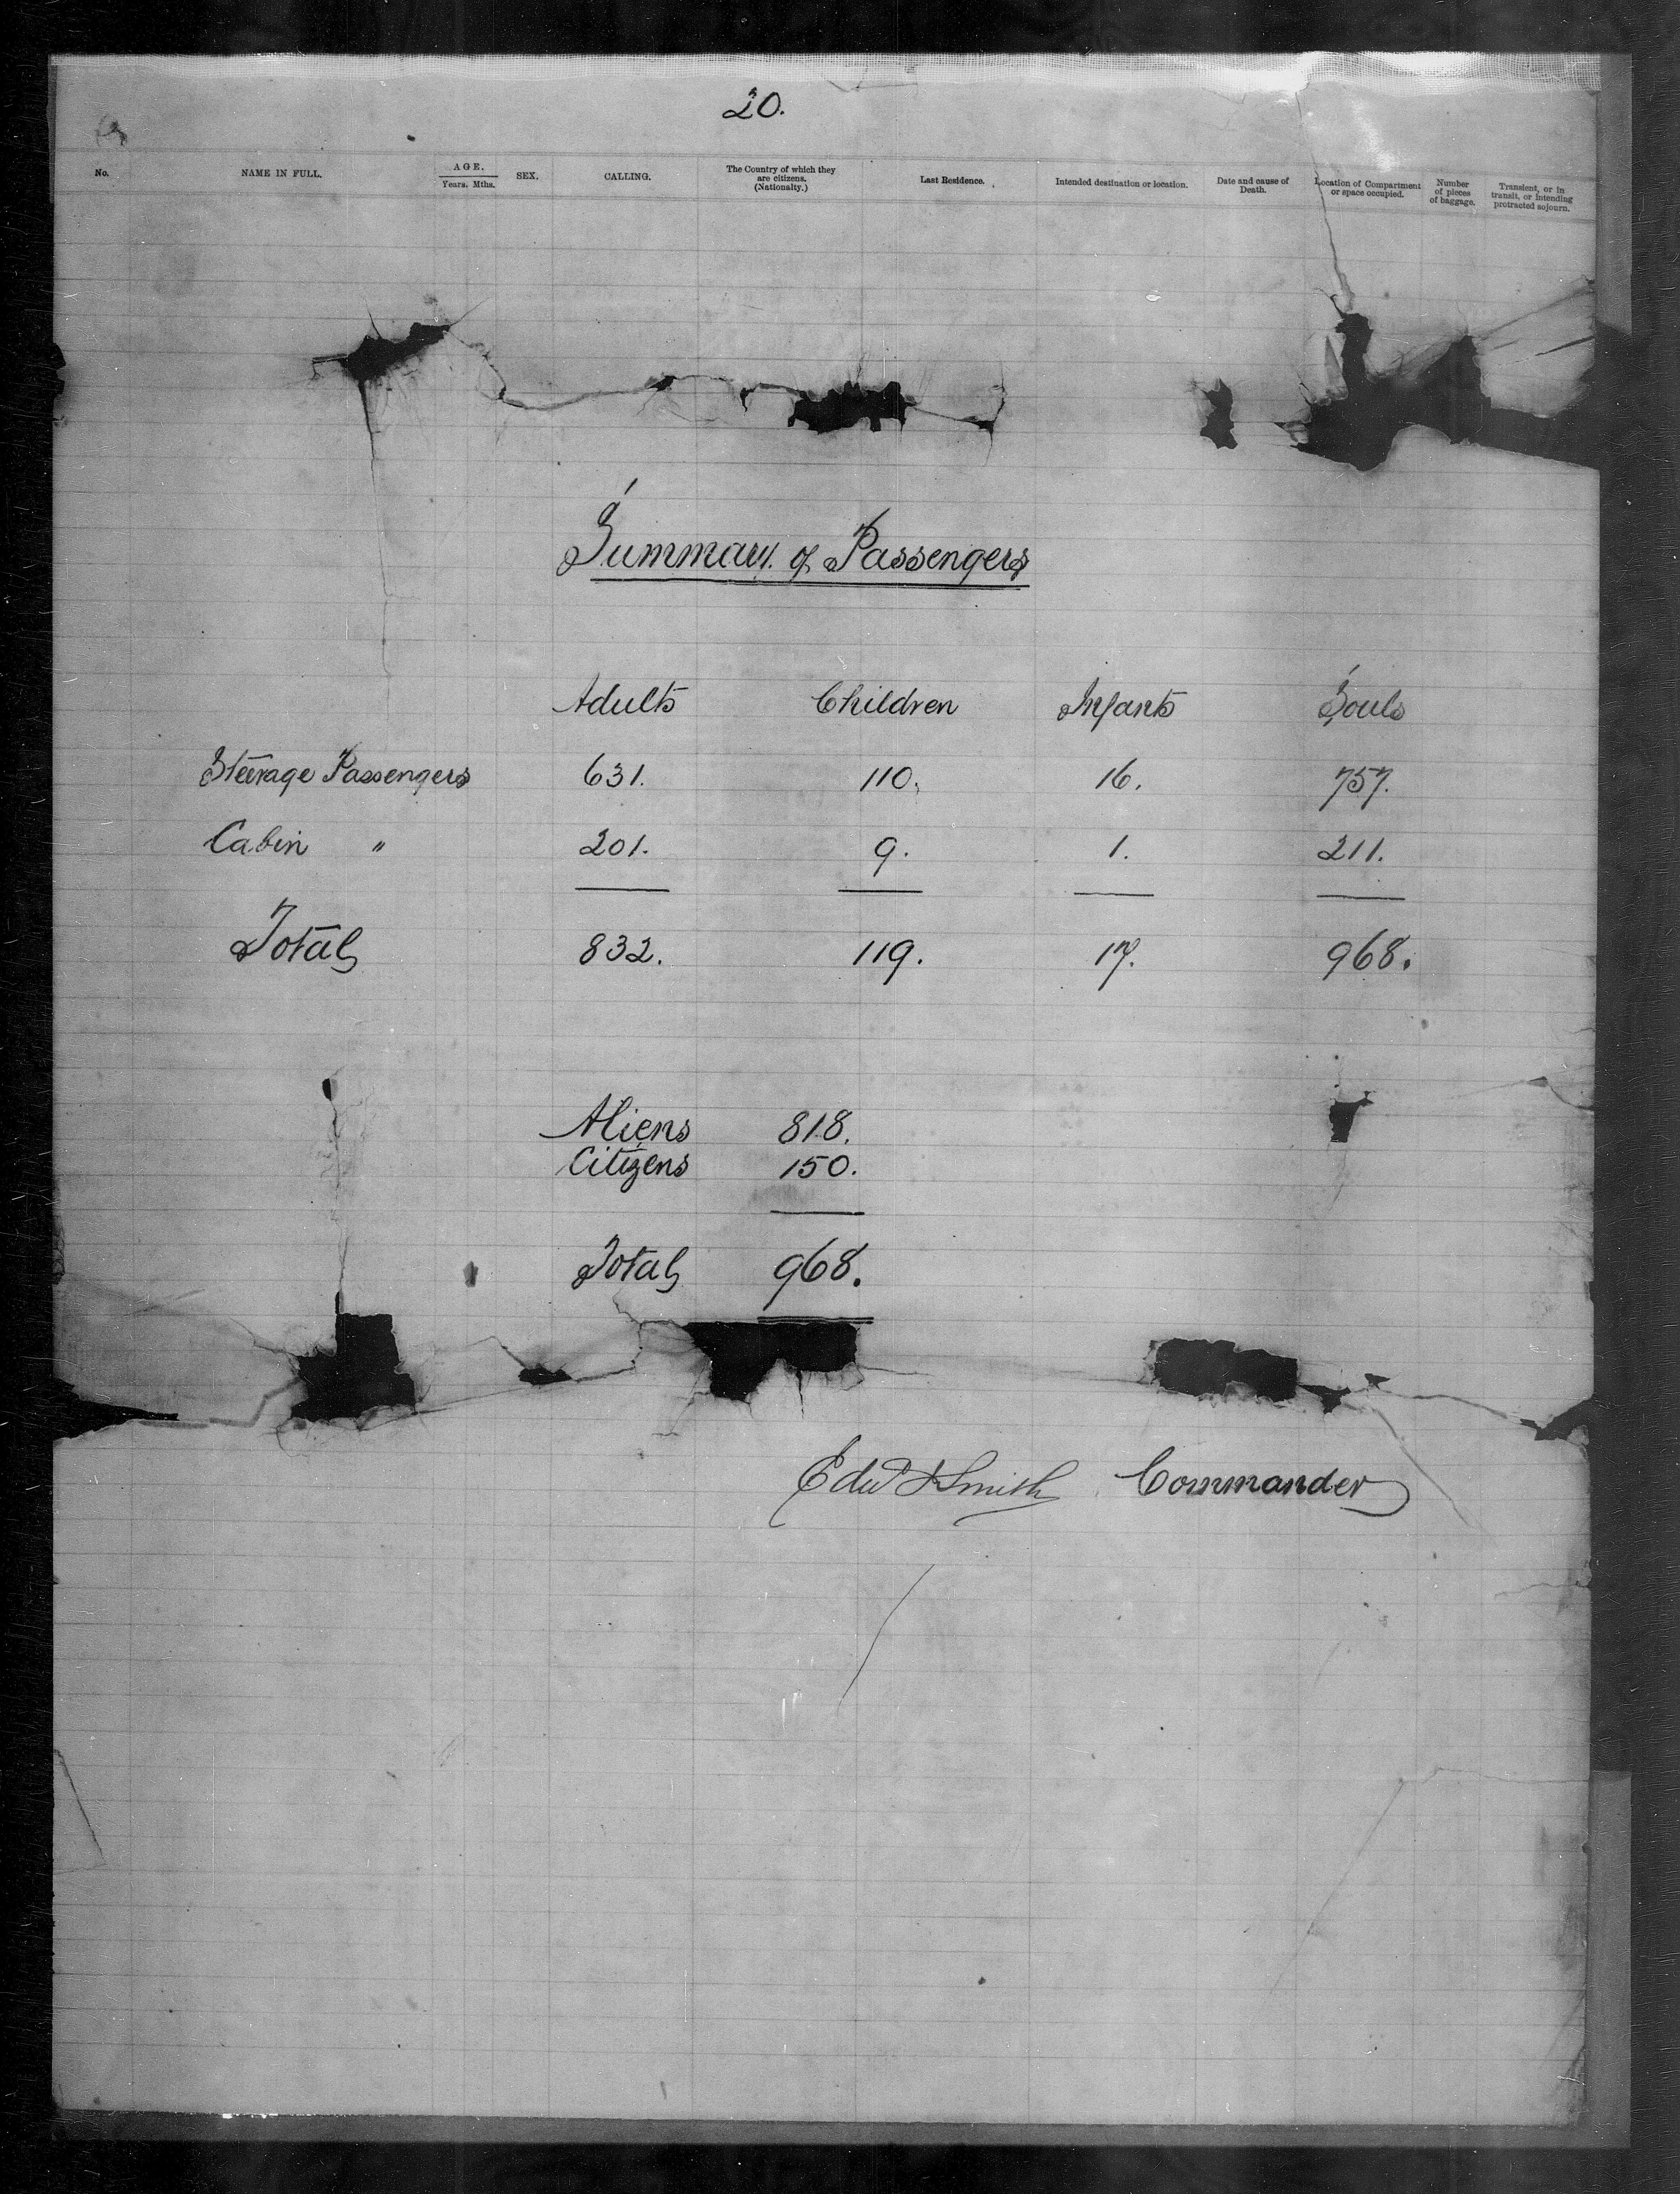 20.
No. NAME IN FULL. AGE. Years. Mths. SEX. CALLING. The Country of which they are citizens. (Nationalty.) Last Residence. Intended destination or location. Date and cause of Death. Location of Compartment or space occupied. Number of pieces of baggage. Transient, or in transit, or intending protracted sojourn.
Summary of Passengers
Adults Children Infants Souls
Steerage Passengers 631. 110. 16. 757.
Cabin " 201. 9. 1. 211.
Total 832. 119. 17. 968.
Aliens 818.
Citizens 150.
Total 968.
Edwd J Smith Commander